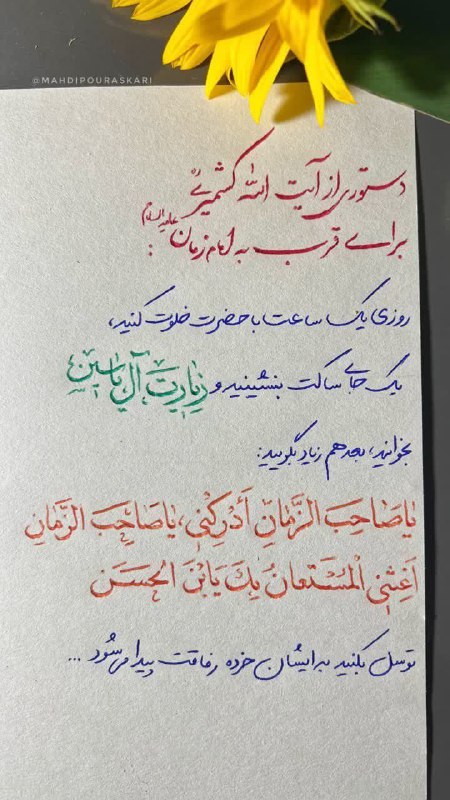 @MAHDIPOURASKARI
دستوری از آیت الله کشمیری
برای قرب به امام زمان علیه‌السلام :
روزی یک ساعت با حضرت خلوت کنید،
یک جای ساکت بنشینید و زیارت آل یاسین
بخوانید، بعد هم زیاد بگویید:
یَا صَاحِبَ الزَّمَانِ أَدْرِکْنِی، یَا صَاحِبَ الزَّمَانِ
أَغِثْنِی الْمُسْتَعَانُ بِکَ یَابْنَ الْحَسَن
توسل بکنید به ایشان خرده رفاقت پیدا می‌شود ...